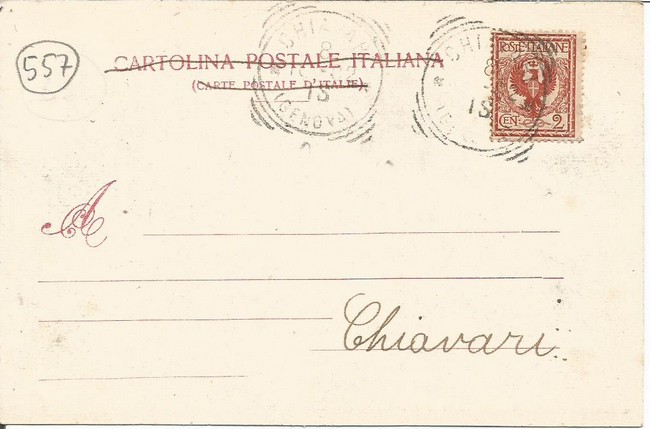 557
CARTOLINA POSTALE ITALIANA
(CARTE POSTALE D'ITALIE)
(GENOVA)
POSTE ITALIANE
CEN. 2
A
Chiavari